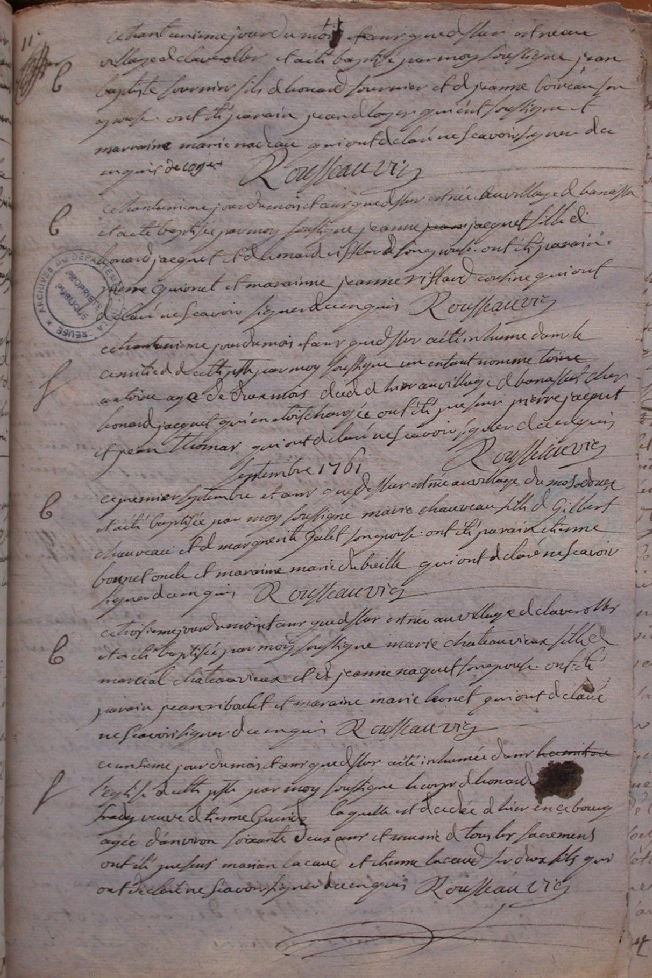 ce trante unieme jour du mois et an que dessus est né au
village de claverolles et a été baptisé par moy soussigné jean
baptiste fournier fils de leonard fournier et de jeanne boireau son
epouse ont été parain jean de loges qui est soussigné et
marraine marie nadeau qui ont declaré ne scavoir signer de ce
enquis deloges Rousseau vic
ce trante unieme jour du mois et an que dessus est née au village de banassa
et a été baptisée par moy soussigné jeanne jacquet fille de
leonard jacquet et de leonarde riffard son epouse ont été parain
pierre quionet et marainne jeanne riffard cousine qui ont
declaré ne scavoir signer de ce enquis Rousseau vic
ce trante unieme jour du mois et an que dessus a été inhumé dans le
cimetiere de cette psse par moy soussigné un enfant nommé
antoine agé de mois decedé d hier au village de banassa chez
leonard jacquet qui en etoit chargée ont été presens pierre jacquet
et jean qui ont declaré ne scavoir signer de ce enquis
Rousseau vic
Septembre 1761
ce premier septembre et an que dessus est née au village du
et a été baptisée par moy soussigné marie chauveau fille de Gilbert
chauveau et de marguerite Julet son epouse ont été parain etienne
bonnet oncle et maraine marie dubreille qui ont declaré ne scavoir
signer de ce enquis Rousseau vic
ce troisieme jour du mois et an que dessus est née au village de claverolles
et a été baptisée par moy soussigné marie chateauvieux fille de
martial chateauvieux et de jeanne naquet son epouse ont été
parain jean ribaulet et maraine marie leonet qui ont declaré
ne scavoir signer de ce enquis Rousseau vic
ce onzieme jour du mois et an que dessus a été inhumée dans
l'eglise de cette psse par moy soussigné le corps de leonarde
veuve d etienne laquelle est decedée d hier en ce bourg
agée d'anviron soixante deux ans et munie de tous les sacremens
ont été presens marian lacaud et etienne lacaud ses deux fils qui
ont declaré ne scavoir signer de ce enquis Rousseau vic